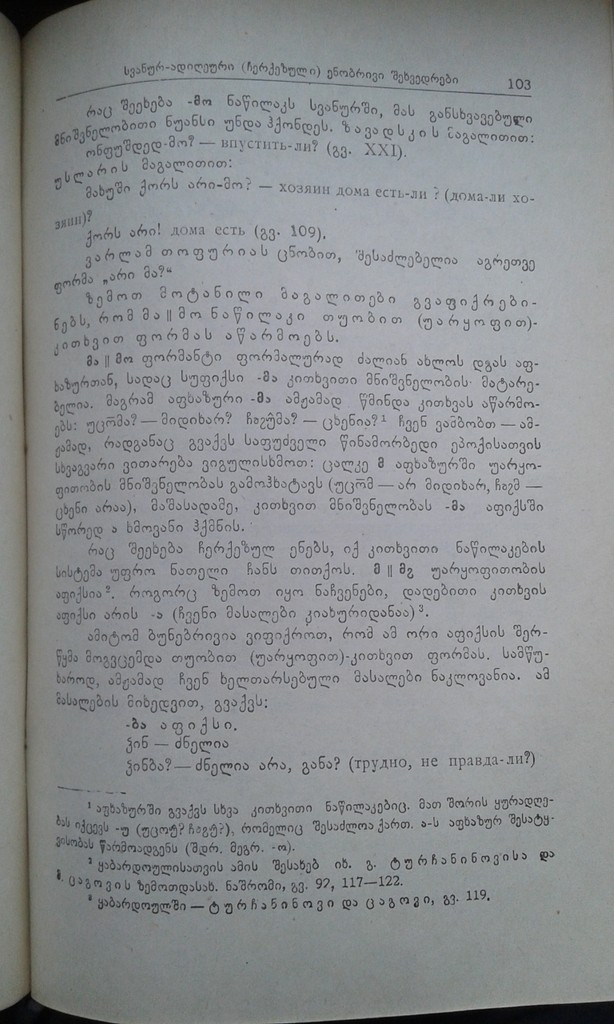 სვანურ-ადიღეური (ჩერქეზული) ენობრივი შეხვედრები 103
რაც შეეხება -მო ნაწილაკს სვანურში, მას განსხვავებული
მნიშვნელობითი ნუანსი უნდა ჰქონდეს. ზავადსკის მაგალითით:
ონფუშდედ-მო? — впустить-ли? (გვ. XXI).
უსლარის მაგალითით:
მახუში ქორს არი-მო? — хозяин дома есть-ли ? (дома-ли хо-
зяин)?
ქორს არი! дома есть (გვ. 109).
ვარლამ თოფურიას ცნობით, შესაძლებელია აგრეთვე
ფორმა „არი მა?“
ზემოთ მოტანილი მაგალითები გვაფიქრები-
ნებს, რომ მა || მო ნაწილაკი თუობით (უარყოფით)-
კითხვით ფორმას აწარმოებს.
მა || მო ფორმანტი ფორმალურად ძალიან ახლოს დგას აფ-
ხაზურთან, სადაც სუფიქსი -მა კითხვითი მნიშვნელობის მატარე-
ბელია. მაგრამ აფხაზური -მა ამჟამად წმინდა კითხვას აწარმო-
ებს: — მიდიხარ? — ცხენია?¹ ჩვენ ვამბობთ — ამ-
ჟამად, რადგანაც გვაქვს საფუძველი წინამორბედი ეპოქისათვის
სხვაგვარი ვითარება ვიგულისხმოთ: ცალკე მ აფხაზურში უარყო-
ფითობის მნიშვნელობას გამოჰხატავს — არ მიდიხარ, —
ცხენი არაა), მაშასადამე, კითხვით მნიშვნელობას -მა აფიქსში
სწორედ ა ხმოვანი ჰქმნის.
რაც შეეხება ჩერქეზულ ენებს, იქ კითხვითი ნაწილაკების
სისტემა უფრო ნათელი ჩანს თითქოს. მ || უარყოფითობის
აფიქსია². როგორც ზემოთ იყო ნაჩვენები, დადებითი კითხვის
აფიქსი არის -ა (ჩვენი მასალები კიახურიდანაა)³.
ამიტომ ბუნებრივია ვიფიქროთ, რომ ამ ორი აფიქსის შერ-
წყმა მოგვცემდა თუობით (უარყოფით)-კითხვით ფორმას. სამწუ-
ხაროდ, ამჟამად ჩვენ ხელთარსებული მასალები ნაკლოვანია. ამ
მასალების მიხედვით, გვაქვს:
-ბა აფიქსი.
— ძნელია
— ძნელია არა, განა? (трудно, не правда-ли?)
¹ აფხაზურში გვაქვს სხვა კითხვითი ნაწილაკებიც. მათ შორის ყურადღე-
ბას იქცევს -უ რომელიც შესაძლოა ქართ. ა-ს აფხაზურ შესატყ-
ვისობას წარმოადგენს (შდრ. მეგრ. -ო).
² ყაბარდოულისათვის ამის შესახებ იხ. გ. ტურჩანინოვისა და
მ. ცაგოვის ზემოთდასახ. ნაშრომი, გვ. 92, 117—122.
³ ყაბარდოულში — ტურჩანინოვი და ცაგოვი, გვ. 119.